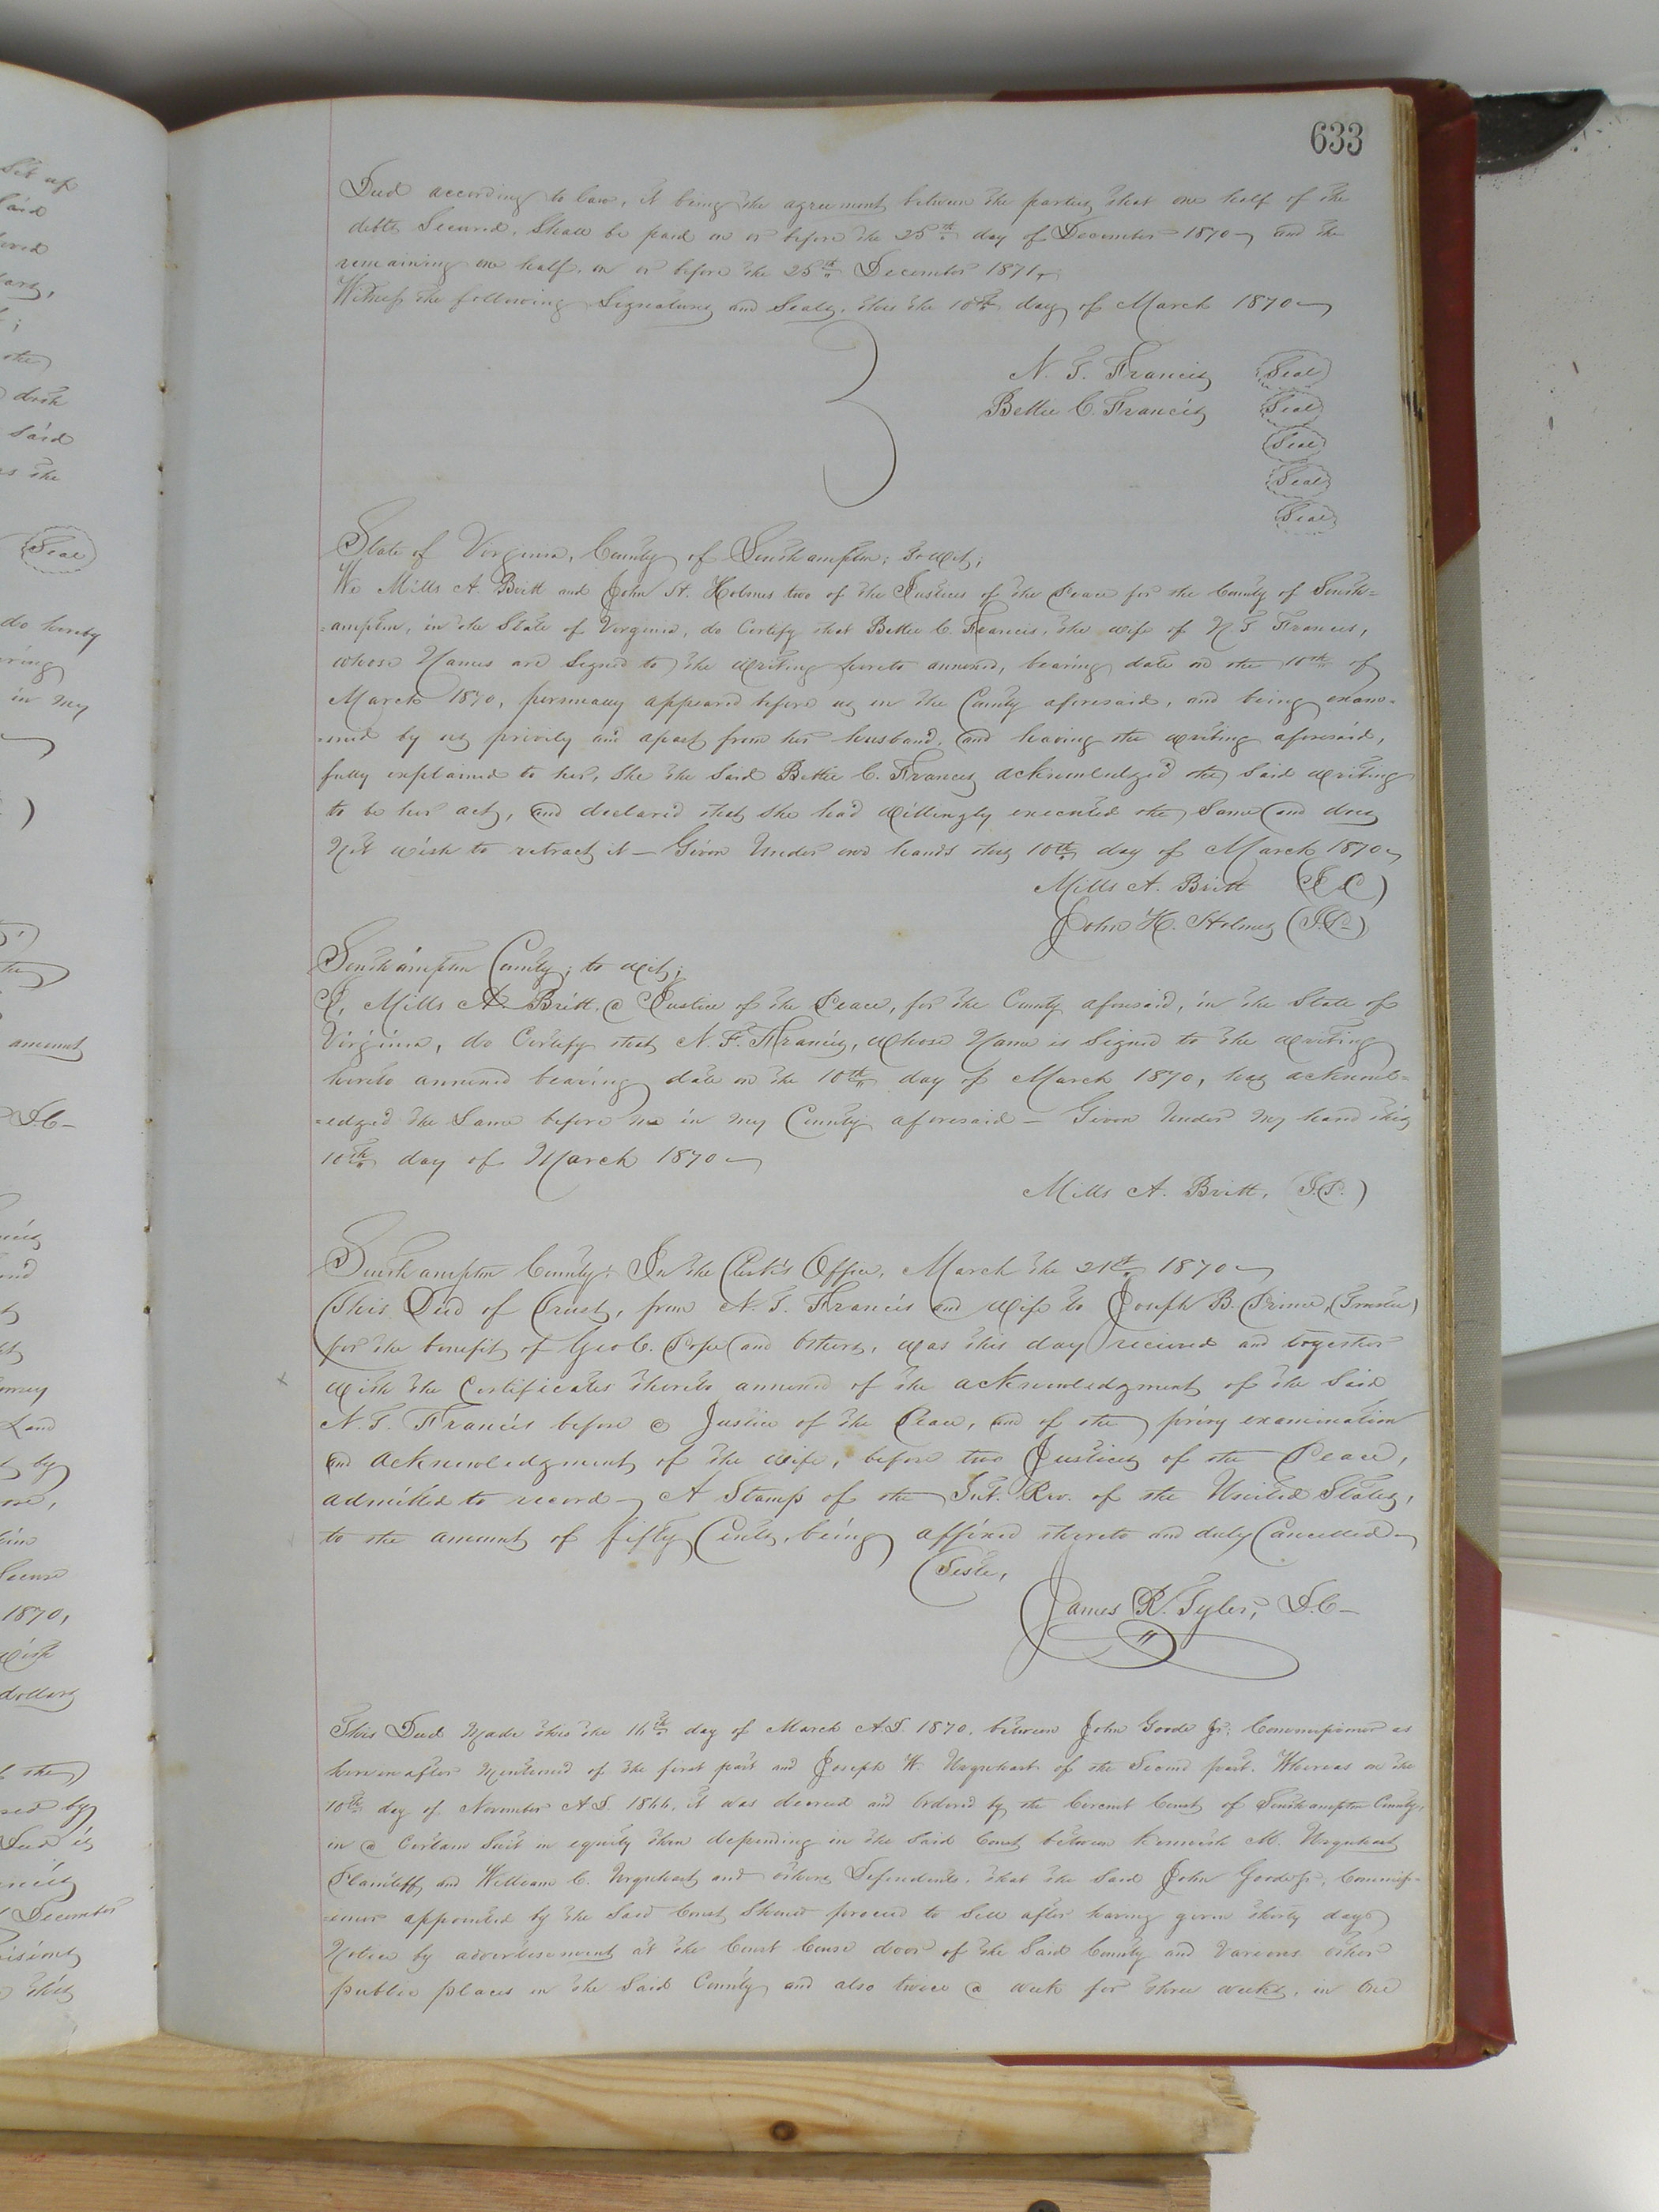 633
Deed according to law, it being the agreement between the parties that one half of the
debts Secured, Shall be paid on or before the 25th day of December 1870 and the
remaining one half, on or before the 25th December 1871,
Witness the following Signatures and Seals, this the 10th day of March 1870
N. T. Francis Seal
Bettie C. Francis Seal
Seal
Seal
Seal
State of Virginia, County of Southampton; to wit;
We Mills A. Britt and John H. Holmes two of the Justices of the Peace for the County of South=
=ampton, in the State of Virginia, do Certify that Bettie C. Francis, the wife of N T Francis,
whose Names are Signed to the writing hereto annexed, bearing date on the 10th of
March 1870, personally appeared before us in the County aforesaid, and being exam=
=ined by us privily and apart from her husband, and having the writing aforesaid,
fully explained to her, She the Said Bettie C. Francis acknowledged the Said writing
to be her act, and declared that She had willingly executed the Same and does
Not wish to retract it – Given Under our hands this 10th day of March 1870
Mills A. Britt (J.P.)
John H. Holmes (J.P.)
Southampton County; to wit;
I, Mills A. Britt, a Justice of the Peace, for the County aforesaid, in the State of
Virginia, do Certify that N. T. Francis, whose Name is Signed to the writing
hereto annexed bearing date on the 10th day of March 1870, has acknowl=
=edged the Same before me in my County aforesaid – Given Under my hand this
10th day of March 1870
Mills A. Britt, (J.P.)
Southampton County: In the Clerk's Office, March the 21st 1870
This Deed of Trust, from N. T. Francis and wife to Joseph B. Prince, (Trustee)
for the benefit of Geo C. Pope and Others, was this day recieved and together
with the Certificates thereto annexed of the acknowledgment of the Said
N. T. Francis before a Justice of the Peace, and of the privy examination
and acknowledgment of the wife, before two Justices of the Peace,
admitted to record – A Stamp of the Int. Rev. of the United States,
to the amount of fifty Cents, being affixed thereto and duly Cancelled
Teste,
James R. Tyler, D.C–
This Deed Made this the 16th day of March A.D. 1870, between John Goode Jr. Commissioner as
hereinafter Mentioned of the first part and Joseph W. Urquhart of the Second part. Whereas on the
10th day of November A.D. 1866, it was decreed and Ordered by the Circuit Court of Southampton County,
in a Certain Suit in equity then depending in the Said Court between M. Urquhart
Plaintiff and William C. Urquhart and others Defendents, that the Said John Goode Jr, Commiss=
=ioner appointed by the Said Court Should proceed to Sell after having given thirty days
Notice by advertisement at the Court house door of the Said County and Various other
public places in the Said County and also twice a week for three weeks, in One